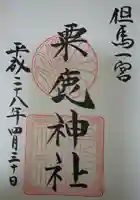 但馬一宮
粟鹿神社
平成二八年四月三十日